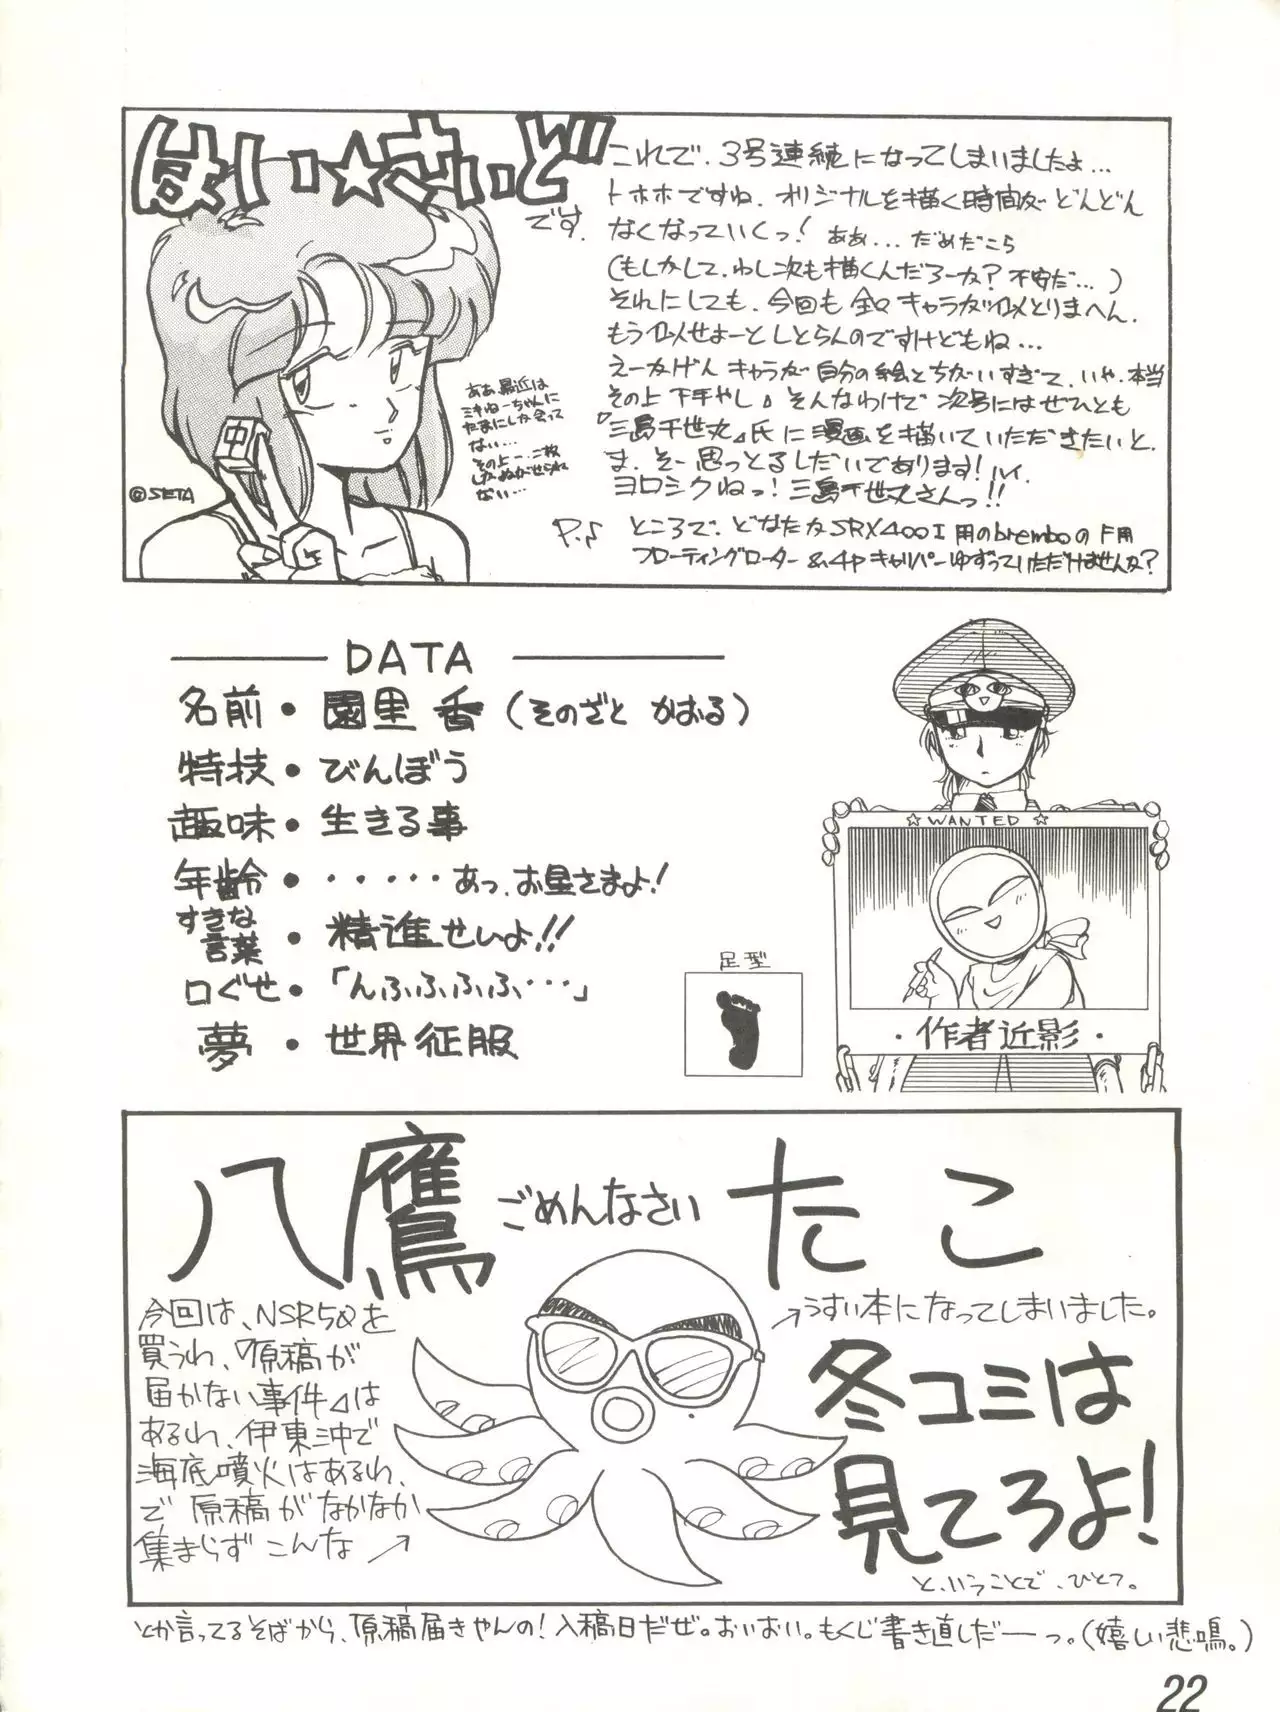 はい☆さいど
です。
これで、3号連続になってしまいましたよ…
トホホですね、オリジナルを描く時間がどんどん
なくなっていくっ! ああ…だめだこら
(もしかして、わし次も描くんだろーか?不安だ…)
それにしても、今回も全々キャラが似とりまへん、
もう似せよーとしとらんのですけどもね…
えーかげんキャラが自分の絵とちがいすぎて、いや、本当
その上下手やし。そんなわけで次号にはぜひとも
『三島千世丸』氏に漫画を描いていただきたいと、
ま、そー思っとるしだいであります!ハイ、
ヨロシクねっ!三島千世丸さんっ!!
P.♪ ところで、どなたかSRX400I用のbremboのF用
フローティングローター&4Pキャリパーゆずっていただけませんか?
ああ、最近は
ミキねーちゃんに
たまにしか会って
ない…
その上一、二枚
しかぬがせられ
ない…
中
©SETA
DATA
名前・園里 香(そのざと かおる)
特技・びんぼう
趣味・生きる事
年齢・・・・・・あっ、お星さまよ!
すきな言葉・精進せいよ!!
口ぐせ・「んふふふふ…」
夢・世界征服
足型
☆WANTED☆
・作者近影・
八鷹 ごめんなさい たこ
今回は、NSR50を
買うわ、『原稿が
届かない事件』は
あるわ、伊東沖で
海底噴火はあるわ、
で原稿がなかなか
集まらずこんな↗
→うすい本になってしまいました。
冬コミは
見てろよ!
と、いうことで、ひとつ。
とか言ってるそばから、原稿届きやんの!入稿日だぜ。おいおい。もくじ書き直しだーっ。(嬉しい悲鳴。)
22